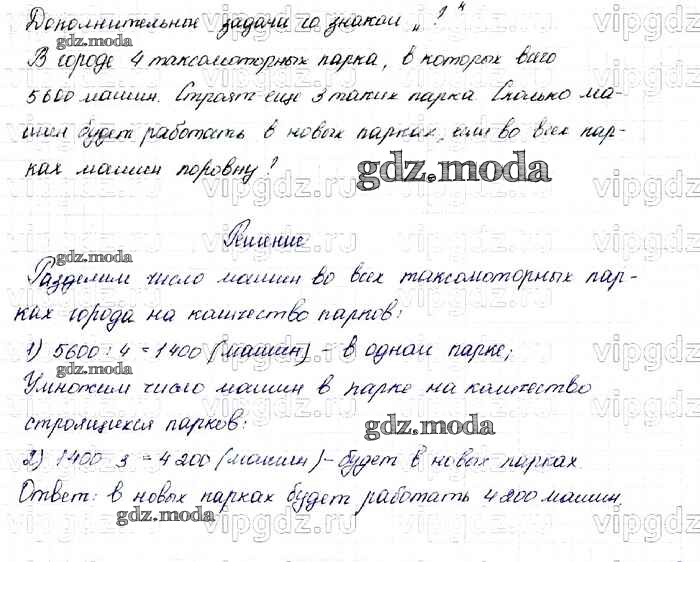 Дополнительные задачи со знаком „ ? "
gdz.moda
В городе 4 таксомоторных парка, в которых всего
5600 машин. Строят еще 3 таких парка. Сколько ма-
шин будет работать в новых парках, если во всех пар-
ках машин поровну?
gdz.moda
Решение
gdz.moda
Разделим число машин во всех таксомоторных пар-
ках города на количество парков:
1) 5600 : 4 = 1400 (машин) - в одном парке;
gdz.moda
Умножим число машин в парке на количество
строящихся парков:
gdz.moda
2) 1400 · 3 = 4200 (машин) - будет в новых парках.
Ответ: в новых парках будет работать 4200 машин.
gdz.moda
vipgdz.ru